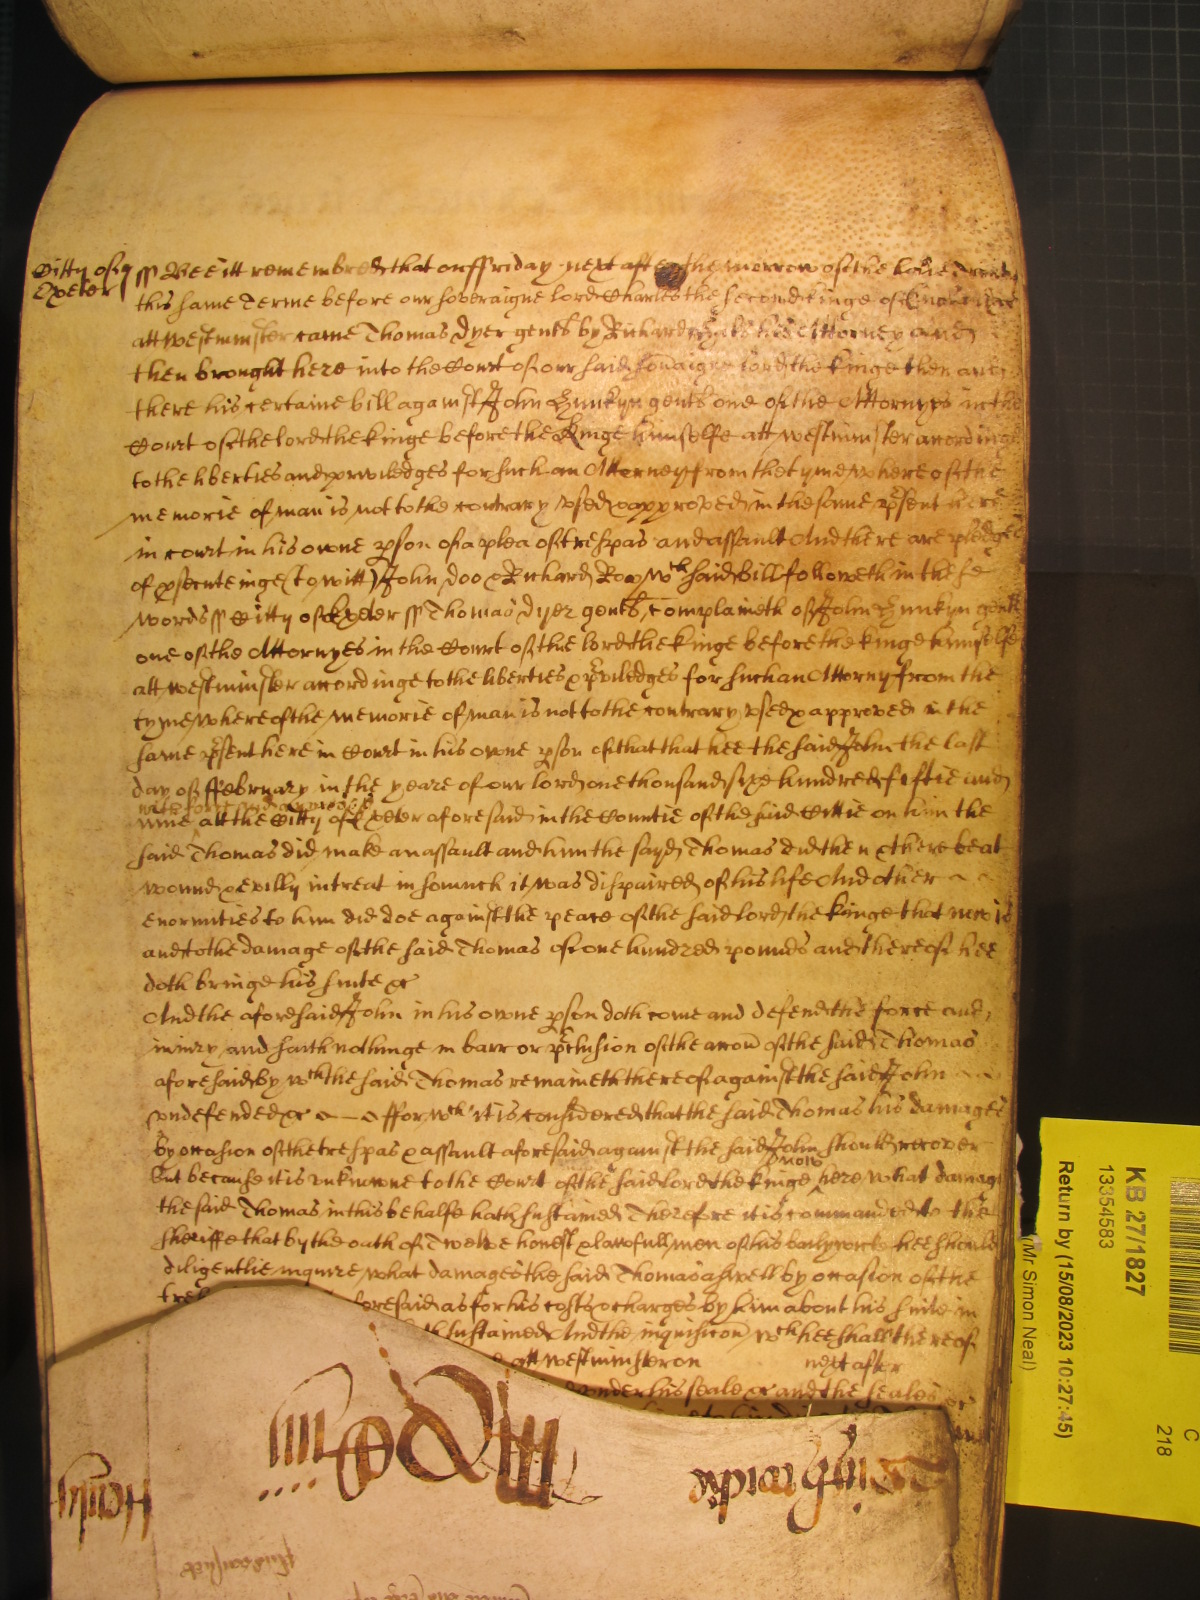 Citty of
Exeter
ss Bee itt remembred that on ffriday next after the morrow of the
this same Terme before our soveraigne lord Charles the second kinge of
att westminster came Thomas Dyer gent by Richard his Attorney and
then brought here into the Court of our said soveraigne lord the kinge then and
there his certaine bill against John Hunkyn gent one of the Attornyes in the
Court of the lord the kinge before the kinge himselfe att westminster accordinge
to the liberties and priviledges for such an Attorney from the tyme whereof the
memorie of man is not to the contrary vsed & approved in the same psent here
in court in his owne pson of a plea of trespas and assault And there are pledges
of psecuteinge (to witt) John doo & Richard Roo wch said bill followeth in these
words ss Citty of Exeter ss Thomas dyer gent complaineth of John Hunkyn gent
one of the Attornyes in the Court of the lord the kinge before the kinge himselfe
att westminster accordinge to the liberties & priviledges for such an Attorny from the
tyme whereof the memorie of man is not to the contrary vsed & approved in the
same psent here in Court in his owne pson of that that hee the said John the last
day of ffebruary in the yeare of our lord one thousand sixe hundred fiftie and
with force and armes &c
nine att the Citty of Exeter aforesaid in the Countie of the said Cittie on him the
said Thomas did make an assault and him the sayd Thomas did then & there beat
wound & evilly intreat in somuch it was dispaired of his life And other
enormities to him did doe against the peace of the said lord the kinge that now is
and to the damage of the said Thomas of one hundred pounds and thereof hee
doth bringe his suite &c
And the aforesaid John in his owne pson doth come and defend the force and
iniury and saith nothinge in barr or pclusion of the accon of the said Thomas
aforesaid by wch the said Thomas remaineth thereof against the said John
vndefended &c ffor wch it is considered that the said Thomas his damages
by occasion of the trespas & assault aforesaid against the said John should recover
now
But because it is vnknowne to the Court of the said lord the kinge here what damage
the said Thomas in this behalfe hath sustained Therefore it is commanded to the
sheriffe that by the oath of Twelve honest & lawfull men of his baylywicke hee should
diligentlie inquire what damages the said Thomas aswell by occasion of the
aforesaid as for his costs & charges by him about his suite in
sustained And the inquisicon wch hee shall thereof
att westminster on next after
vnder his seale &c and the seales
KB 27/1827
13354583
Return by (15/08/2023 10:27:45)
(Mr Simon Neal)
C
218